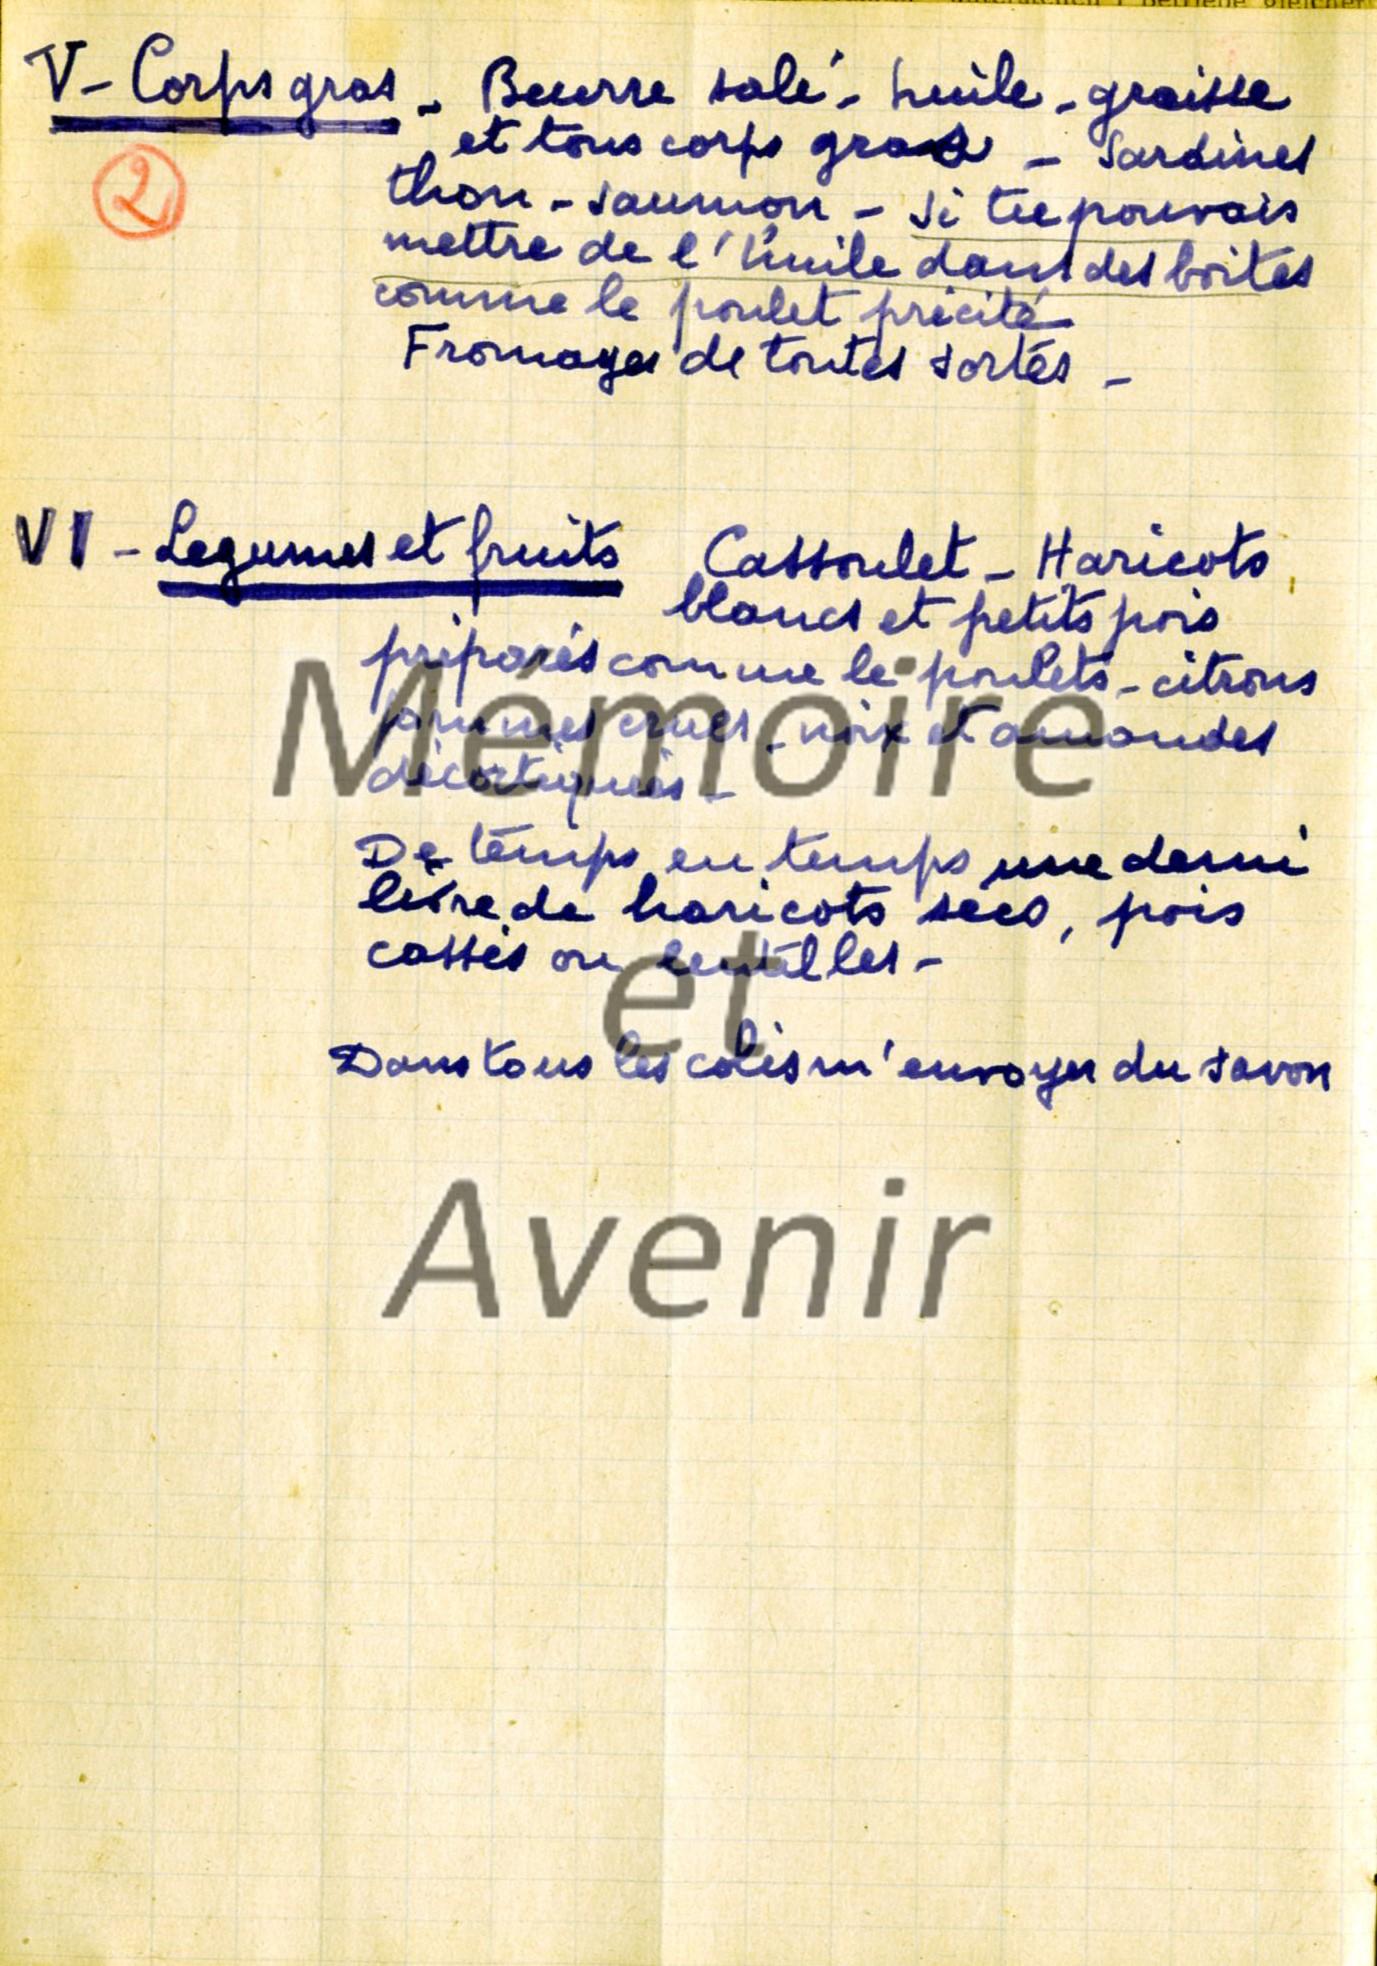 V - Corps gras - Beurre salé - huile - graisse
et tous corps gras - Sardines
②
thon - saumon - si tu pouvais
mettre de l'huile dans des boites
comme le poulet précité
Fromages de toutes sortes -
VI - Legumes et fruits Cassoulet - Haricots
blancs et petits pois
préparés comme le poulets - citrons
pommes crues - noix et amandes
décortiqués -
De temps en temps une demi
livre de haricots secs, pois
cassés ou lentilles -
Dans tous les colis m'envoyer du savon
Mémoire
et
Avenir